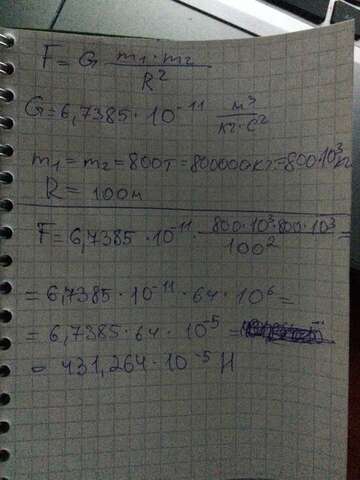 F = G m₁·m₂ / R²
G = 6,7385·10⁻¹¹ м³ / кг·с²
m₁ = m₂ = 800т = 800000кг = 800·10³кг
R = 100м
F = 6,7385·10⁻¹¹· 800·10³·800·10³ / 100² =
= 6,7385·10⁻¹¹·64·10⁶ =
= 6,7385·64·10⁻⁵ =
= 431,264·10⁻⁵ Н